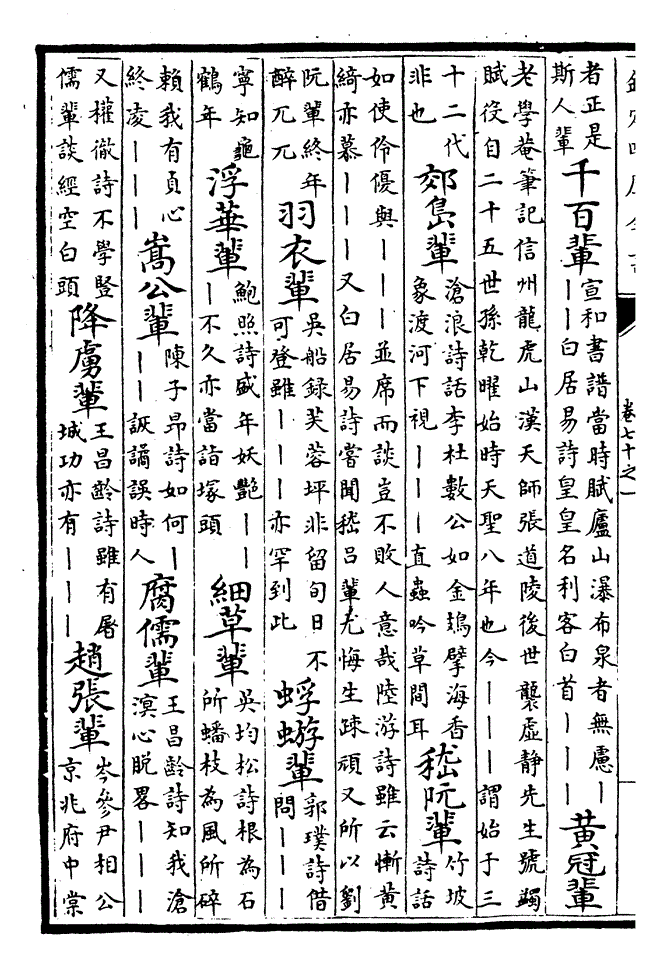 卷七十之一
者正是
斯人輩
千百輩
宣和書譜當時賦廬山瀑布泉者無慮｜
｜｜白居易詩皇皇名利客白首｜｜｜
黄冠輩
老學菴筆記信州龍虎山漢天師張道陵後世襲虛靜先生號蠲
賦役自二十五世孫乾曜始時天聖八年也今｜｜｜謂始于三
十二代
非也
郊島輩
滄浪詩話李杜數公如金鳷擘海香
象渡河下視｜｜｜直蟲吟草間耳
嵇阮輩
竹坡
詩話
如使伶優與｜｜｜並席而談豈不敗人意哉陸游詩雖云慚黄
綺亦慕｜｜｜又白居易詩嘗聞嵇吕輩尤悔生疎頑又所以劉
阮輩終年
醉兀兀
羽衣輩
吳船録芙蓉坪非留旬日不
可登雖｜｜｜亦罕到此
蜉蝣輩
郭璞詩借
問｜｜｜
寧知龜
鶴年
浮華輩
鮑照詩盛年妖艷｜｜
｜不久亦當詣塚頭
細草輩
吳均松詩根為石
所蟠枝為風所碎
賴我有貞心
終凌｜｜｜
嵩公輩
陳子昂詩如何｜
｜｜詼譎誤時人
腐儒輩
王昌齡詩知我滄
溟心脱畧｜｜｜
又權徹詩不學豎
儒輩談經空白頭
降虜輩
王昌齡詩雖有屠
城功亦有｜｜｜
趙張輩
岑參尹相公
京兆府中棠